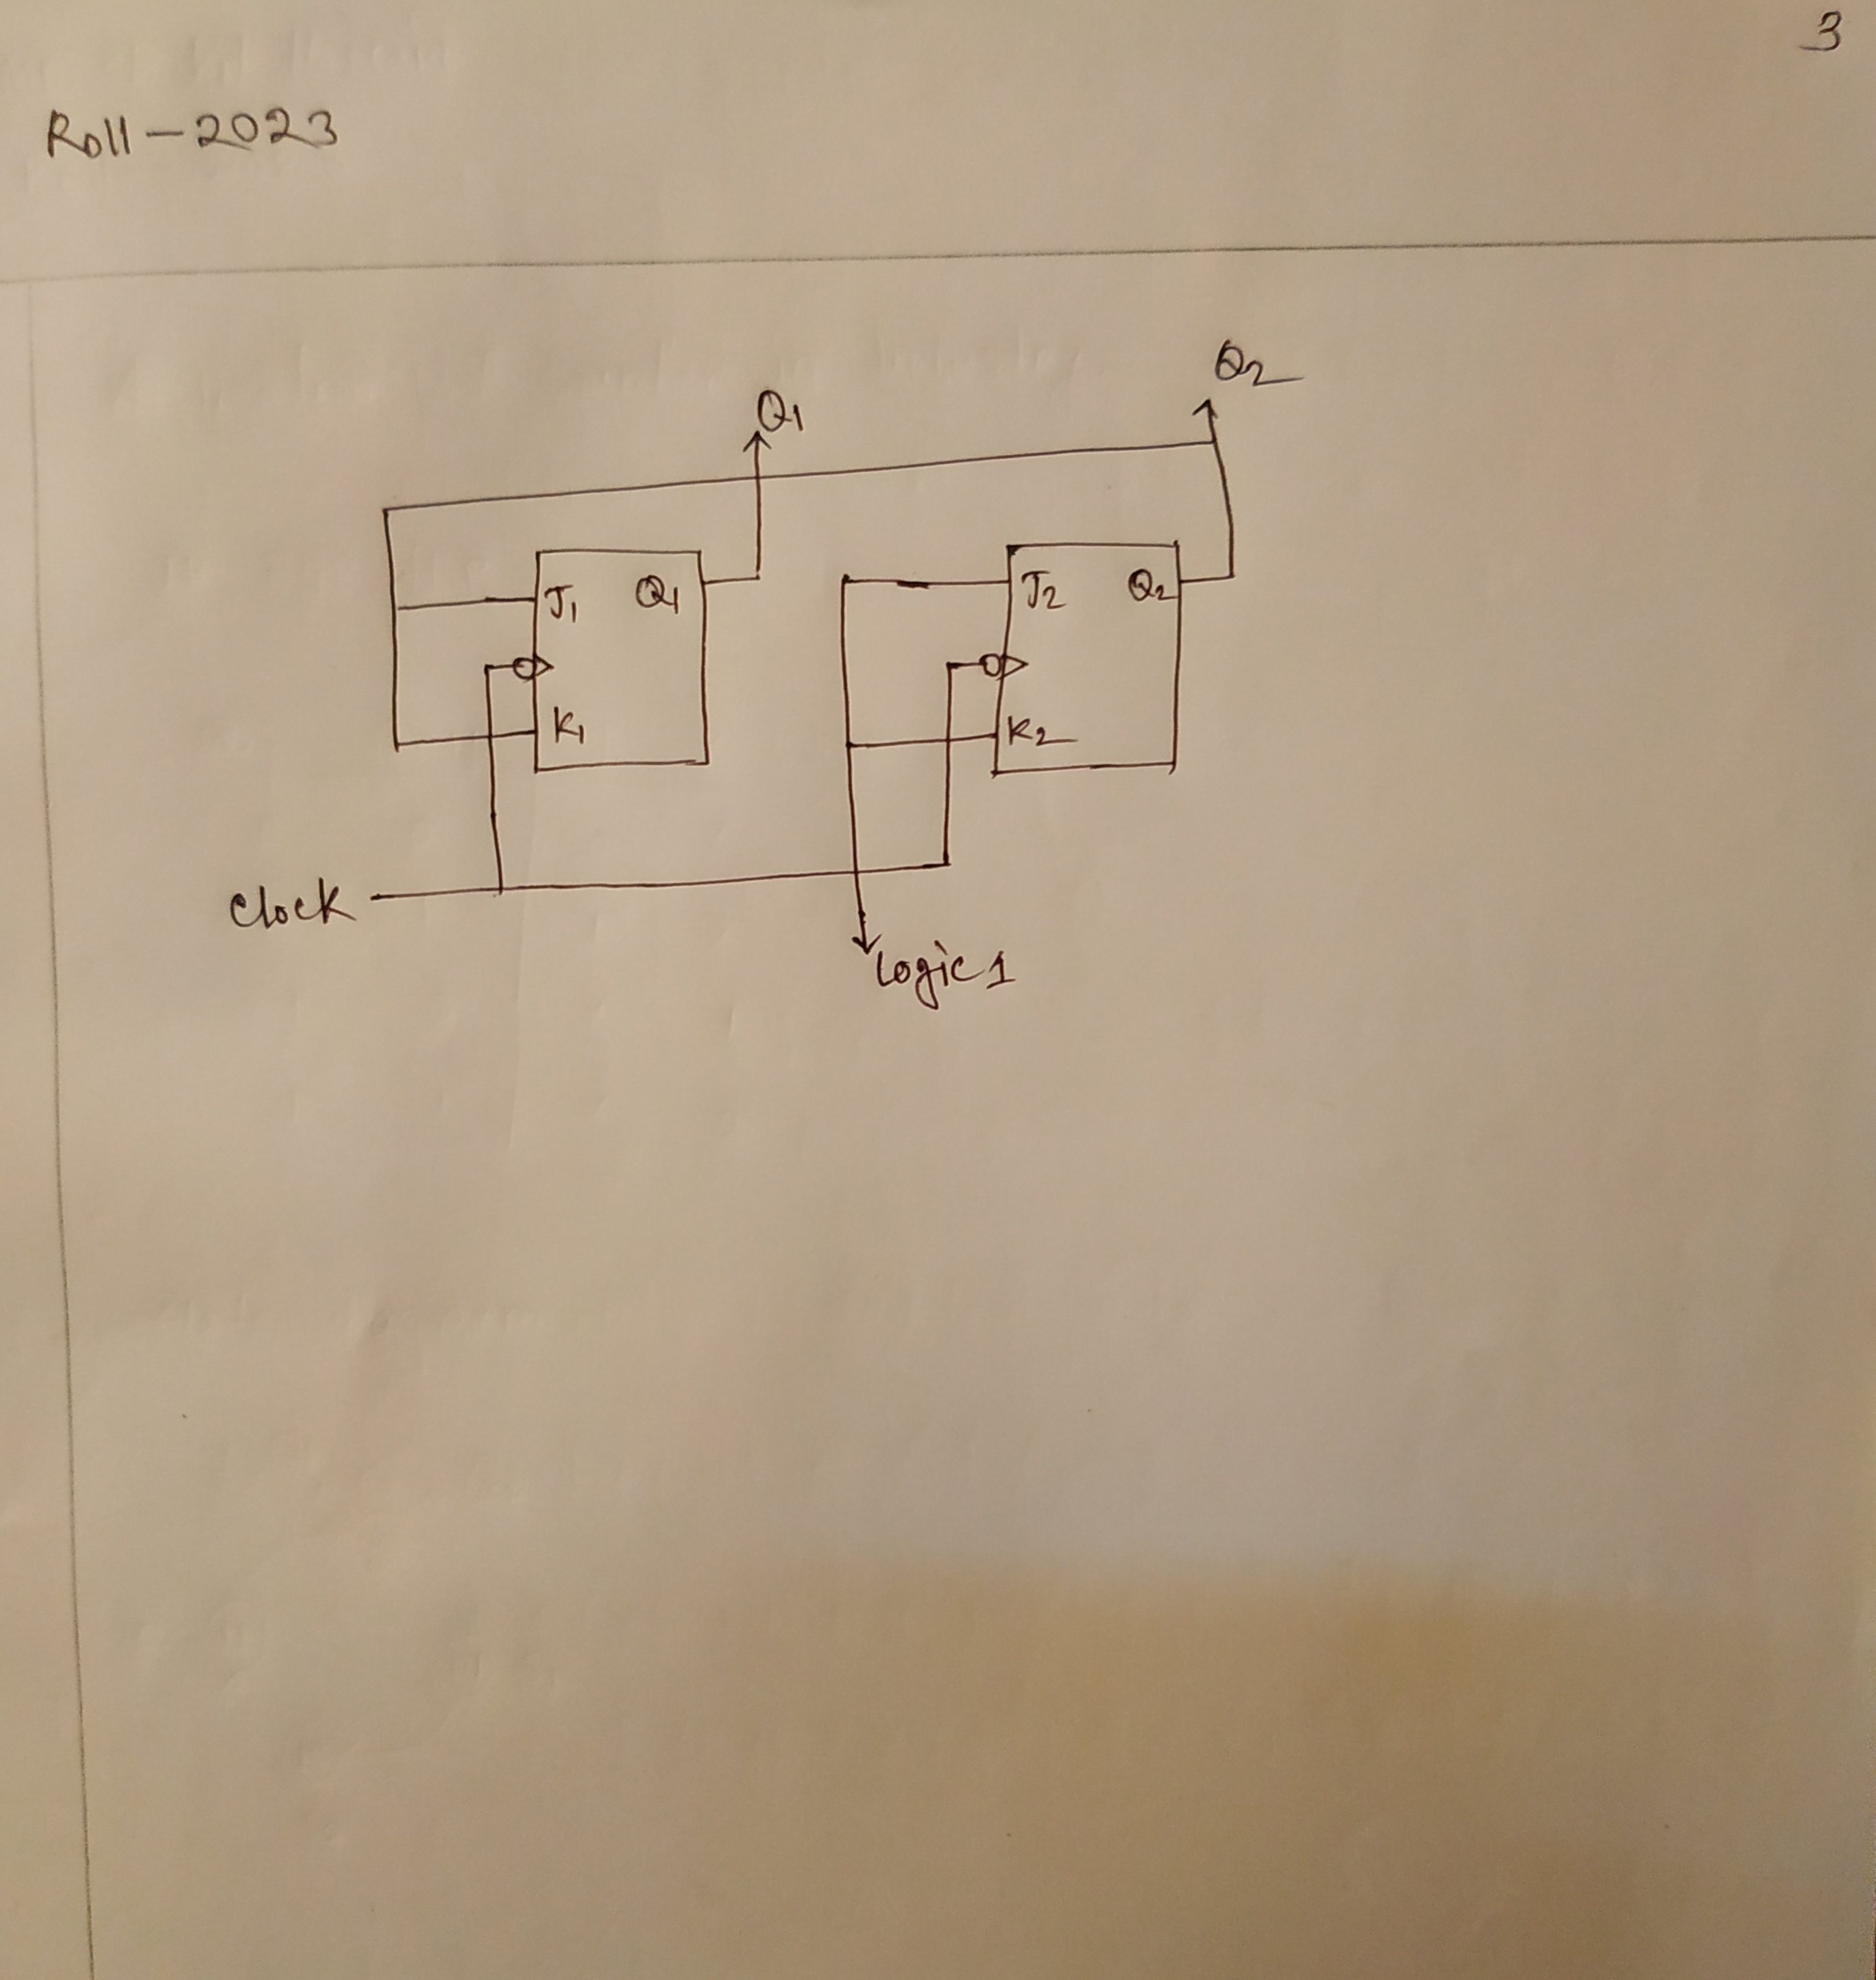 3
Roll-2023
Q2
Q1
J1 Q1
J2 Q2
K1
K2
Clock
Logic 1